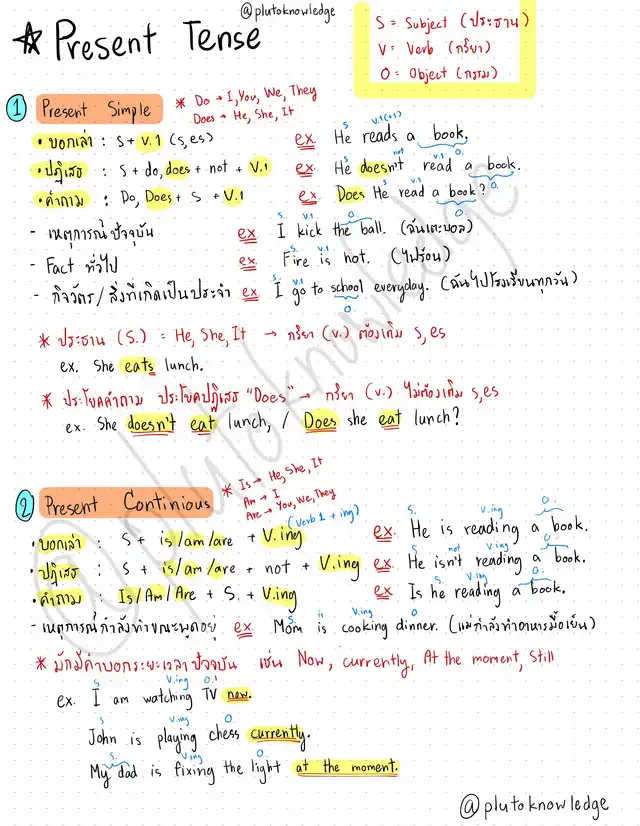 @plutoknowledge
☆ Present Tense
S = Subject (ประธาน)
V = Verb (กริยา)
O = Object (กรรม)
1 Present Simple
* Do → I, You, We, They
Does → He, She, It
• บอกเล่า : S + V.1 (s,es) ex. He reads a book.
S V.1(+s) O
• ปฏิเสธ : S + do, does + not + V.1 ex. He doesn't read a book.
S not V.1 O.
• คำถาม : Do, Does + S + V.1 ex. Does He read a book?
S V.1 O
- เหตุการณ์ปัจจุบัน ex I kick the ball. (ฉันเตะบอล)
S. V.1 O
- Fact ทั่วไป ex. Fire is hot. (ไฟร้อน)
S. V.1
- กิจวัตร/สิ่งที่เกิดเป็นประจำ ex. I go to school everyday. (ฉันไปโรงเรียนทุกวัน)
S. V.1 O
* ประธาน (S.) = He, She, It → กริยา (v.) ต้องเติม s,es
ex. She eats lunch.
* ประโยคคำถาม ประโยคปฏิเสธ "Does" → กริยา (v.) ไม่ต้องเติม s,es
ex. She doesn't eat lunch, / Does she eat lunch?
2 Present Continious
* Is → He, She, It
Am → I
Are → You, We, They
(Verb 1 + ing)
• บอกเล่า : S + is/am/are + V.ing ex. He is reading a book.
S. V.ing O.
• ปฏิเสธ : S + is/am/are + not + V.ing ex. He isn't reading a book.
S not V.ing O.
• คำถาม : Is/Am/Are + S. + V.ing ex Is he reading a book.
S. V.ing O.
- เหตุการณ์กำลังทำขณะพูดอยู่ ex Mom is cooking dinner. (แม่กำลังทำอาหารมื้อเย็น)
S is V.ing O
* มักมีคำบอกระยะเวลาปัจจุบัน เช่น Now, currently, At the moment, Still
ex. I am watching TV now.
S V.ing O.
John is playing chess currently.
S V.ing O.
My dad is fixing the light at the moment.
S. V.ing O.
@plutoknowledge
@plutoknowledge